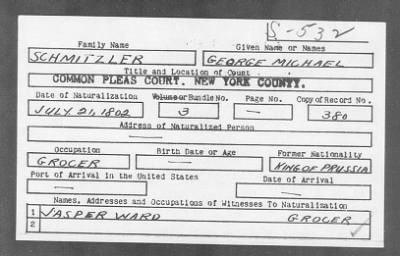 S-532
Family Name Given Name or Names
SCHMITZLER GEORGE MICHAEL
Title and Location of Court
COMMON PLEAS COURT, NEW YORK COUNTY.
Date of Naturalization Volume or Bundle No. Page No. Copy of Record No.
JULY 21, 1802 3 — 380
Address of Naturalized Person
—
Occupation Birth Date or Age Former Nationality
GROCER — KING OF PRUSSIA
Port of Arrival in the United States Date of Arrival
— —
Names, Addresses and Occupations of Witnesses To Naturalization
1 JASPER WARD GROCER
2